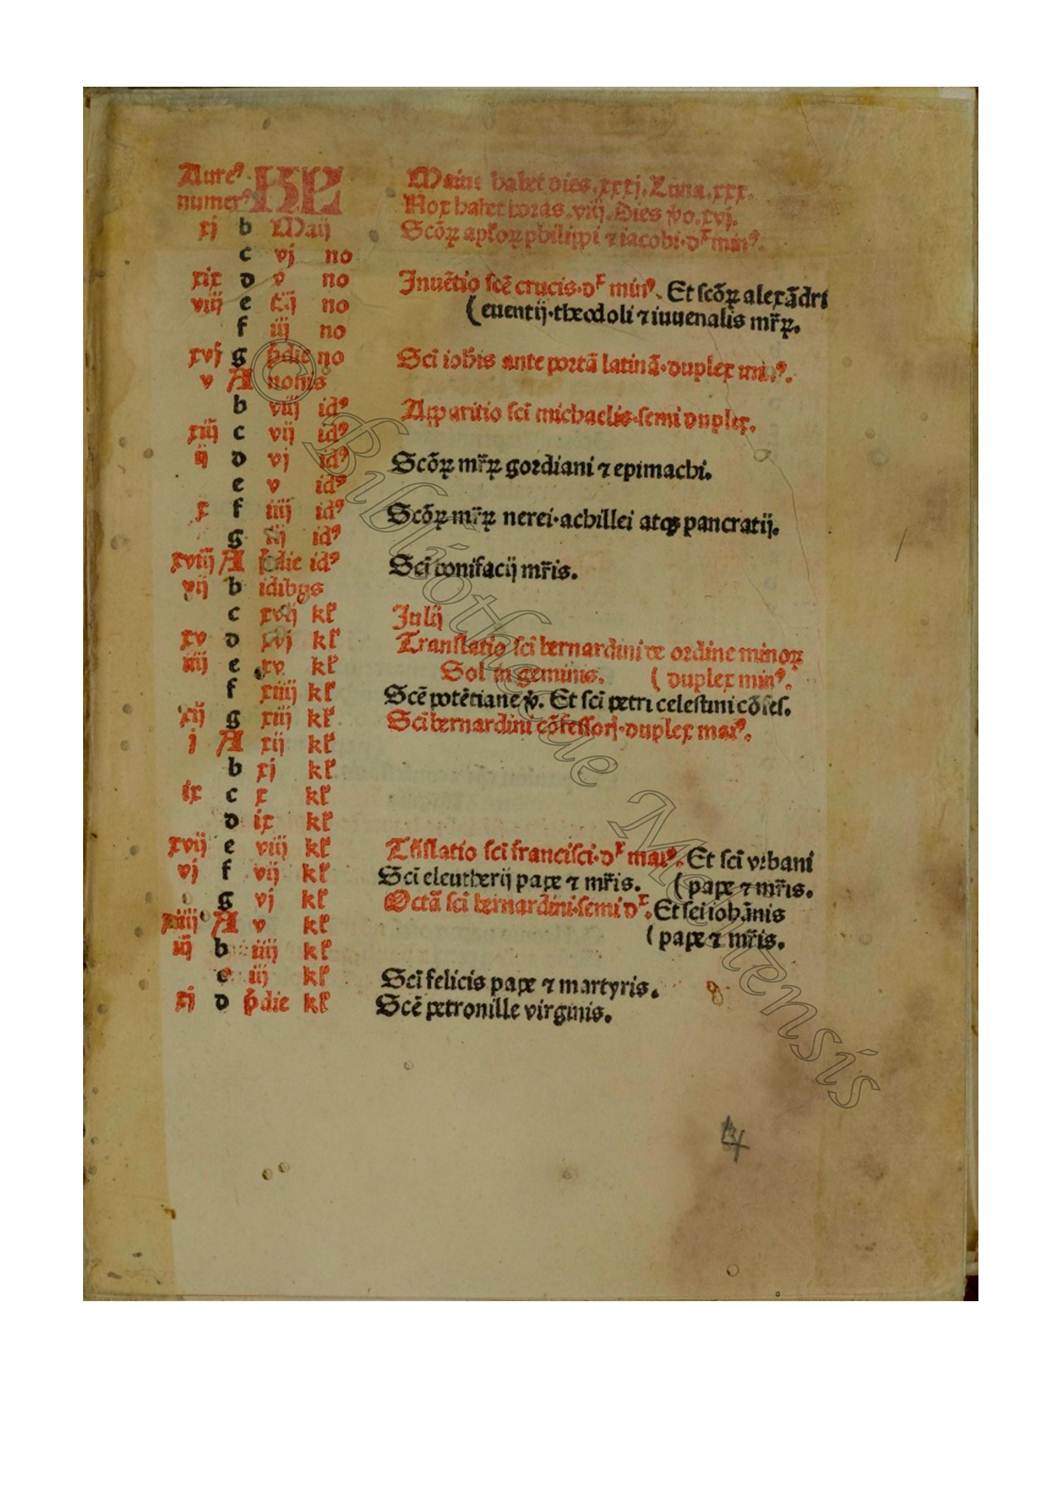 Aureꝰ KL Maius habet dies .xxxj. Luna .xxx.
numerꝰ Nox habet horas .viij. Dies ꝟo .xvj.
xj b Maij Scōꝝ apl'oꝝ philippi ⁊ iacobi. dʳ minꝰ.
c vj no
xix d v no Inuētio scē crucis. dʳ minꝰ. Et scōꝝ alexādri
viij e iiij no (euentij. theodoli ⁊ iuuenalis mr̄ꝝ.
f iij no
xvj g p̄die no Sci ioh̄is ante portā latinā. duplex minꝰ.
v A nonis
b viij idꝰ Apparitio sci michaelis. semi duplex.
xiij c vij idꝰ
ij d vj idꝰ Scōꝝ mr̄ꝝ gordiani ⁊ epimachi.
e v idꝰ
x f iiij idꝰ Scōꝝ mr̄ꝝ nerei. achillei atqꝫ pancratij.
g iij idꝰ
xviij A p̄die idꝰ Sci bonifacij mr̄is.
vij b idibus
c xvij kl' Julij
xv d xvj kl' Translatio sci bernardini de ordine minoꝝ
iiij e xv kl' Sol in geminis. (duplex minꝰ.
f xiiij kl' Scē potētiane ꝟ. Et sci petri celestini cōfes.
xij g xiij kl' Sci bernardini cōfessorj. duplex maiꝰ.
j A xij kl'
b xj kl'
ix c x kl'
d ix kl'
xvij e viij kl' Trāslatio sci francisci. dʳ maiꝰ. Et sci vrbani
vj f vij kl' Sci eleutherij pape ⁊ mr̄is. (pape ⁊ mr̄is.
g vj kl' Octā sci bernardini. semi dʳ. Et sci iohānis
xiiij A v kl' (pape ⁊ mr̄is.
iij b iiij kl'
c iij kl' Sci felicis pape ⁊ martyris.
xj d p̄die kl' Scē petronille virginis.
© Bibliothecae Metensis